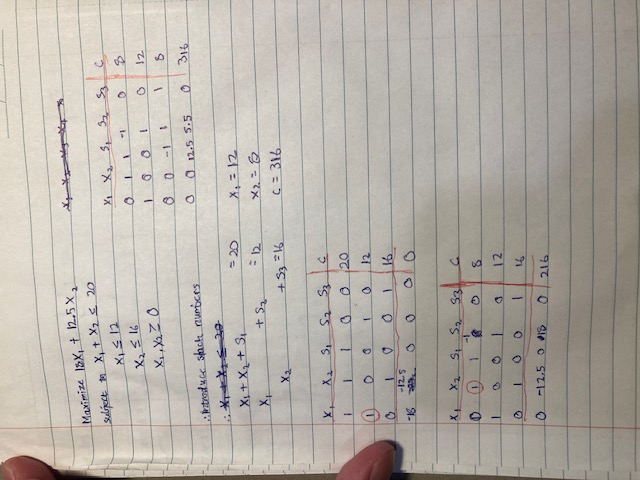 Maximize 18X₁ + 12.5X₂
subject to X₁ + X₂ ≤ 20
X₁ ≤ 12
X₂ ≤ 16
X₁, X₂ ≥ 0
∴ Introduce slack numbers
∴ X₁ + X₂ ≤ 20
X₁ + X₂ + S₁ = 20
X₁ + S₂ = 12
X₂ + S₃ = 16
X₁ X₂ S₁ S₂ S₃ C
1 1 1 0 0 20
1 0 0 1 0 12
0 1 0 0 1 16
-18 -12.5 0 0 0 0
X₁ X₂ S₁ S₂ S₃ C
0 1 1 -1 0 8
1 0 0 1 0 12
0 1 0 0 1 16
0 -12.5 0 18 0 216
X₁ X₂ X₃ X₄ X
X₁ X₂ S₁ S₂ S₃ C
0 1 1 -1 0 8
1 0 0 1 0 12
0 0 -1 1 1 8
0 0 12.5 5.5 0 316
X₁ = 12
X₂ = 8
C = 316